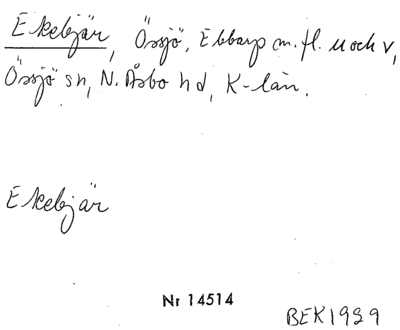 Ekebjär, Össjö, Ebbarp m.fl. u och v,
Össjö sn, N. Åsbo hd, K-län.
Ekebjär
Nr 14514
BEK1939